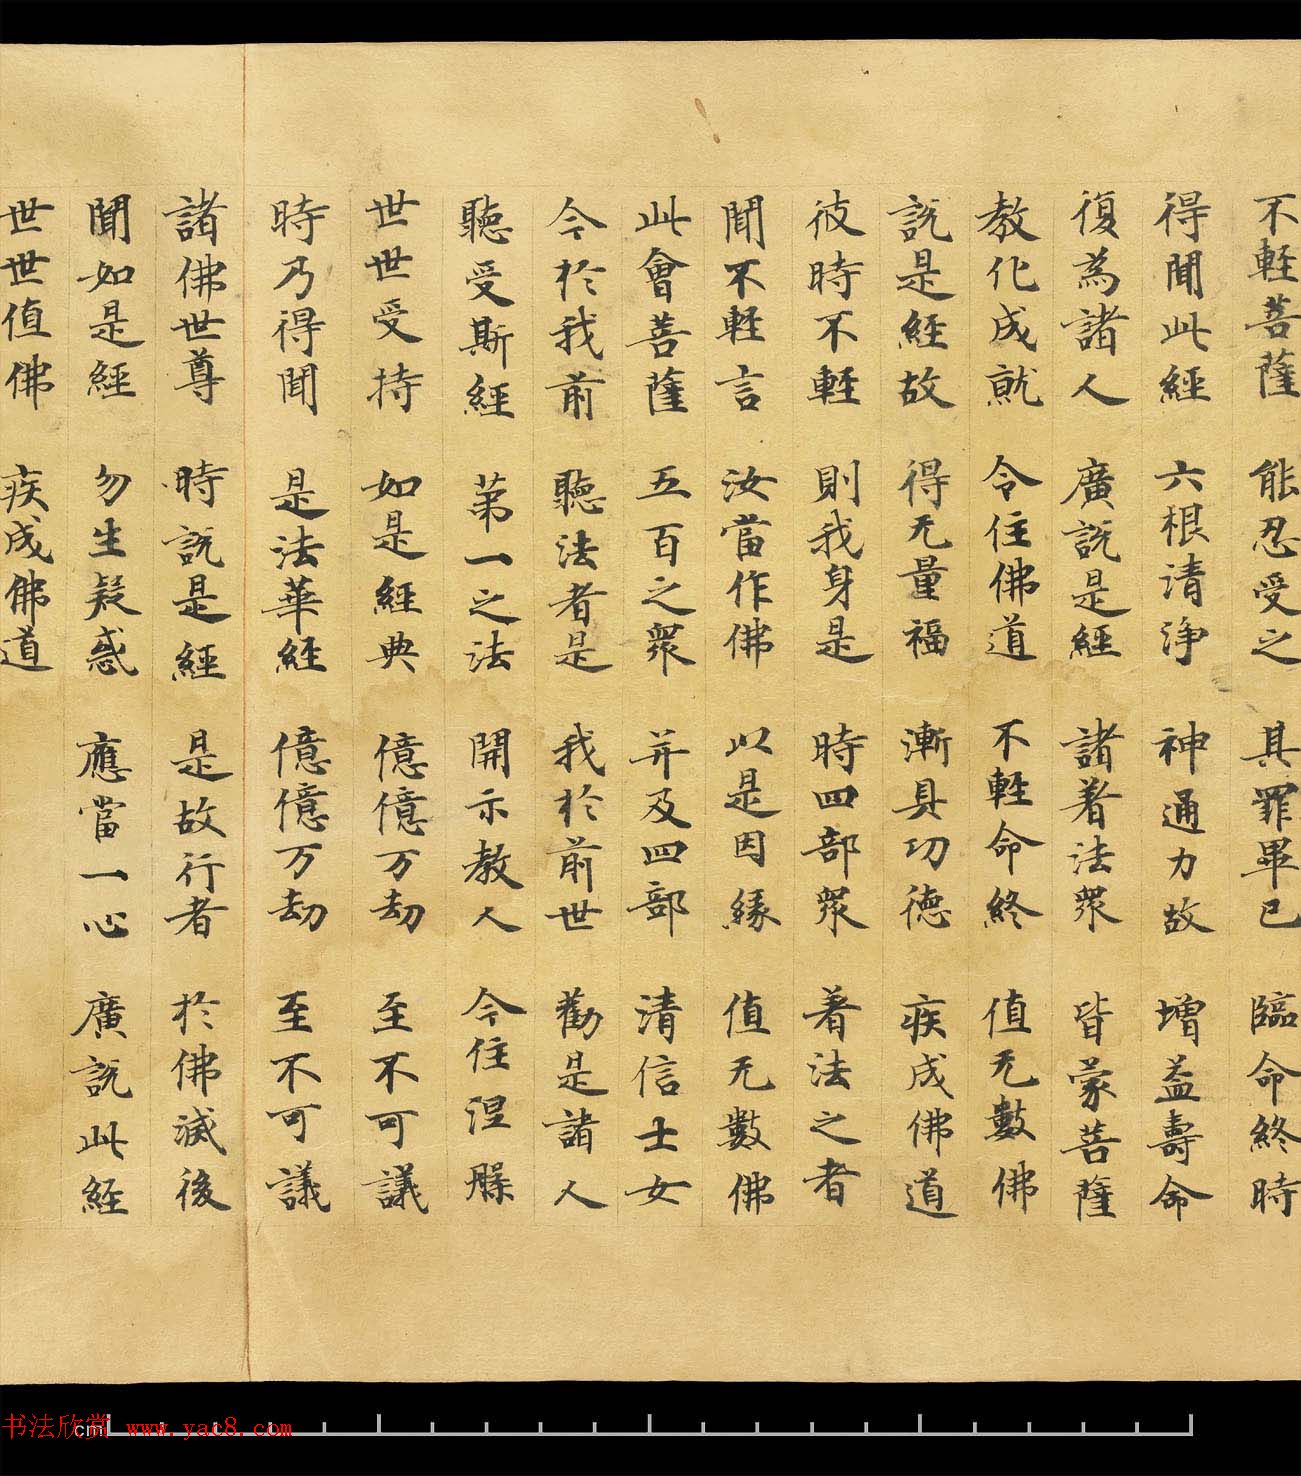 不輕菩薩 能忍受之 其罪畢已 臨命終時
得聞此經 六根清淨 神通力故 增益壽命
復為諸人 廣說是經 諸著法衆 皆蒙菩薩
教化成就 令住佛道 不輕命終 值无數佛
說是經故 得无量福 漸具功德 疾成佛道
彼時不輕 則我身是 時四部衆 著法之者
聞不輕言 汝當作佛 以是因緣 值无數佛
此會菩薩 五百之衆 并及四部 清信士女
今於我前 聽法者是 我於前世 勸是諸人
聽受斯經 第一之法 開示教人 令住涅槃
世世受持 如是經典 億億万劫 至不可議
時乃得聞 是法華經 億億万劫 至不可議
諸佛世尊 時說是經 是故行者 於佛滅後
聞如是經 勿生疑惑 應當一心 廣說此經
世世值佛 疾成佛道
书法欣赏 www.yac8.com
cm